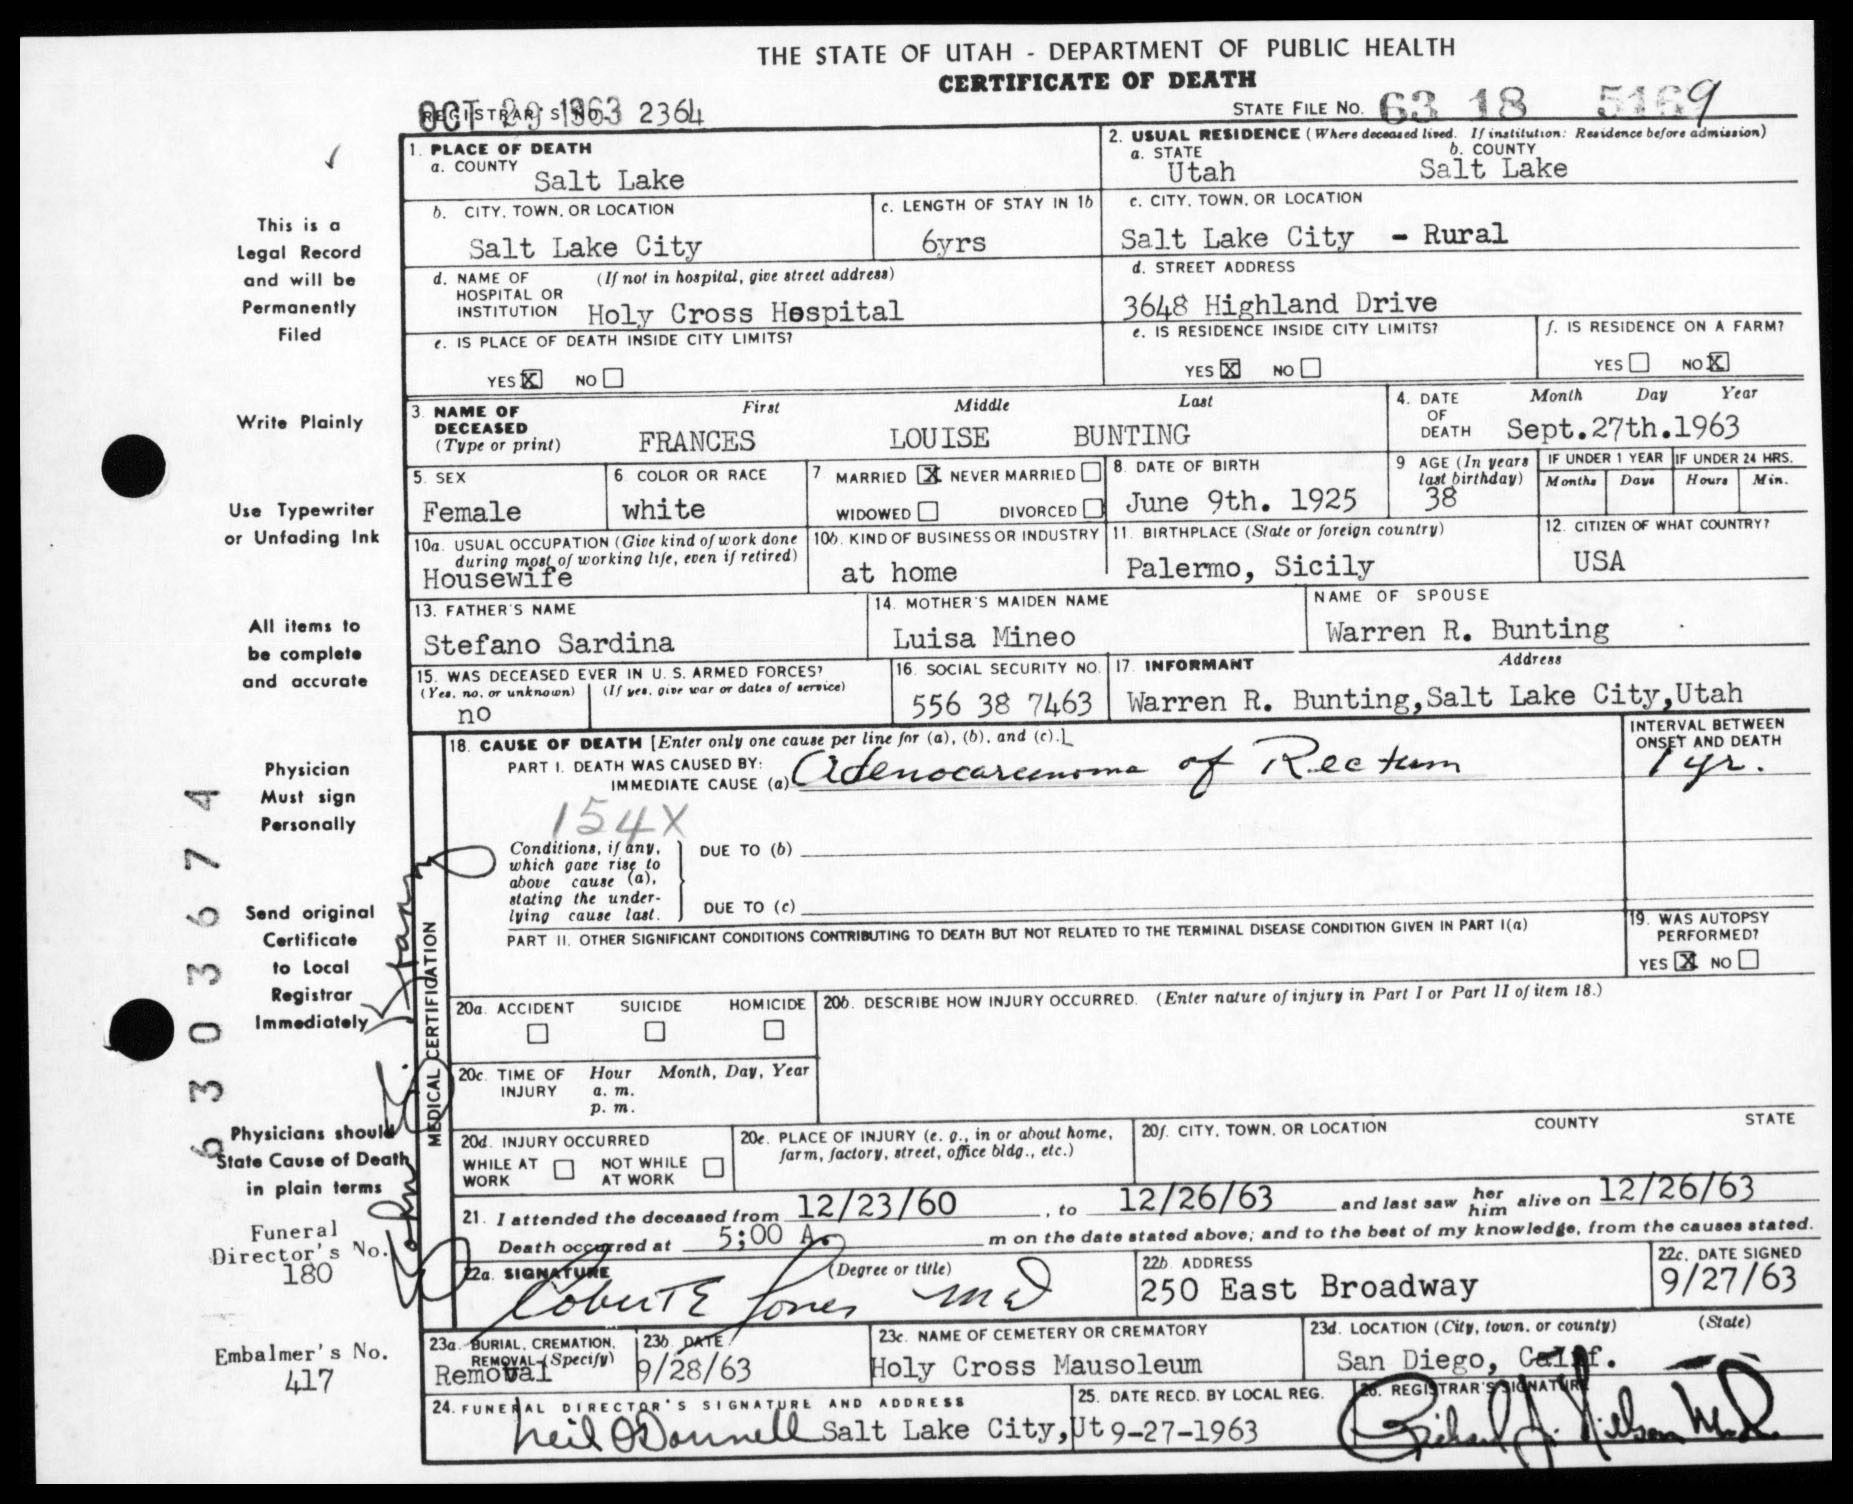 THE STATE OF UTAH - DEPARTMENT OF PUBLIC HEALTH
CERTIFICATE OF DEATH
OCT 29 1963
REGISTRAR'S NO. 2364
STATE FILE NO. 63 18 5169
1. PLACE OF DEATH
a. COUNTY
Salt Lake
2. USUAL RESIDENCE (Where deceased lived. If institution: Residence before admission)
a. STATE b. COUNTY
Utah Salt Lake
b. CITY, TOWN, OR LOCATION
Salt Lake City
c. LENGTH OF STAY IN 1b
6yrs
c. CITY, TOWN, OR LOCATION
Salt Lake City - Rural
d. NAME OF HOSPITAL OR INSTITUTION (If not in hospital, give street address)
Holy Cross Hospital
d. STREET ADDRESS
3648 Highland Drive
e. IS PLACE OF DEATH INSIDE CITY LIMITS?
YES X NO
e. IS RESIDENCE INSIDE CITY LIMITS?
YES X NO
f. IS RESIDENCE ON A FARM?
YES NO X
3. NAME OF DECEASED (Type or print)
First Middle Last
FRANCES LOUISE BUNTING
4. DATE OF DEATH Month Day Year
Sept.27th.1963
5. SEX
Female
6. COLOR OR RACE
white
7. MARRIED X NEVER MARRIED
WIDOWED DIVORCED
8. DATE OF BIRTH
June 9th. 1925
9. AGE (In years last birthday)
38
IF UNDER 1 YEAR IF UNDER 24 HRS.
Months Days Hours Min.
10a. USUAL OCCUPATION (Give kind of work done during most of working life, even if retired)
Housewife
10b. KIND OF BUSINESS OR INDUSTRY
at home
11. BIRTHPLACE (State or foreign country)
Palermo, Sicily
12. CITIZEN OF WHAT COUNTRY?
USA
13. FATHER'S NAME
Stefano Sardina
14. MOTHER'S MAIDEN NAME
Luisa Mineo
NAME OF SPOUSE
Warren R. Bunting
15. WAS DECEASED EVER IN U. S. ARMED FORCES?
(Yes, no, or unknown) (If yes, give war or dates of service)
no
16. SOCIAL SECURITY NO.
556 38 7463
17. INFORMANT Address
Warren R. Bunting,Salt Lake City,Utah
MEDICAL CERTIFICATION
18. CAUSE OF DEATH [Enter only one cause per line for (a), (b), and (c).]
PART I. DEATH WAS CAUSED BY:
IMMEDIATE CAUSE (a) Adenocarcinoma of Rectum
INTERVAL BETWEEN ONSET AND DEATH
1 yr.
154X
Conditions, if any, which gave rise to above cause (a), stating the underlying cause last.
DUE TO (b)
DUE TO (c)
PART II. OTHER SIGNIFICANT CONDITIONS CONTRIBUTING TO DEATH BUT NOT RELATED TO THE TERMINAL DISEASE CONDITION GIVEN IN PART I(a)
19. WAS AUTOPSY PERFORMED?
YES X NO
20a. ACCIDENT SUICIDE HOMICIDE
20b. DESCRIBE HOW INJURY OCCURRED. (Enter nature of injury in Part I or Part II of item 18.)
20c. TIME OF INJURY Hour Month, Day, Year
a. m.
p. m.
20d. INJURY OCCURRED
WHILE AT WORK NOT WHILE AT WORK
20e. PLACE OF INJURY (e. g., in or about home, farm, factory, street, office bldg., etc.)
20f. CITY, TOWN, OR LOCATION COUNTY STATE
21. I attended the deceased from 12/23/60, to 12/26/63 and last saw her him alive on 12/26/63
Death occurred at 5;00 A. m on the date stated above; and to the best of my knowledge, from the causes stated.
22a. SIGNATURE (Degree or title)
Robert E Jones MD
22b. ADDRESS
250 East Broadway
22c. DATE SIGNED
9/27/63
23a. BURIAL, CREMATION, REMOVAL (Specify)
Removal
23b. DATE
9/28/63
23c. NAME OF CEMETERY OR CREMATORY
Holy Cross Mausoleum
23d. LOCATION (City, town, or county) (State)
San Diego, Calif.
24. FUNERAL DIRECTOR'S SIGNATURE AND ADDRESS
Neil O'Donnell Salt Lake City,Ut
25. DATE RECD. BY LOCAL REG.
9-27-1963
26. REGISTRAR'S SIGNATURE
This is a
Legal Record
and will be
Permanently
Filed
Write Plainly
Use Typewriter
or Unfading Ink
All items to
be complete
and accurate
Physician
Must sign
Personally
Send original
Certificate
to Local
Registrar
Immediately
Physicians should
State Cause of Death
in plain terms
Funeral
Director's No.
180
Embalmer's No.
417
6303674